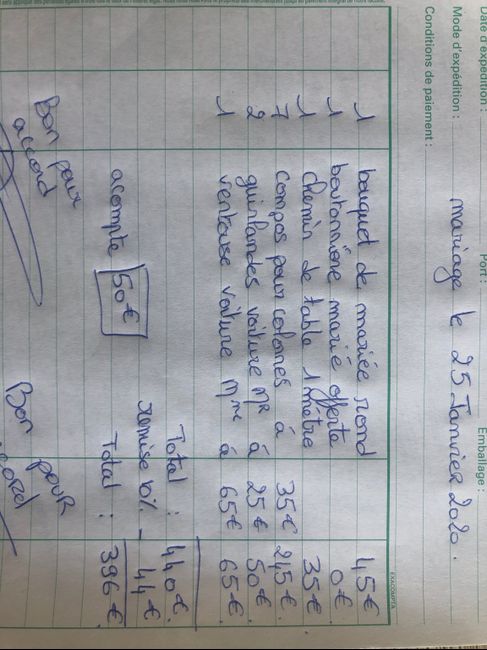 Date d'expédition :
Mode d'expédition : Port : Emballage :
Conditions de paiement :
mariage le 25 Janvier 2020.
EXACOMPTA
1 bouquet de mariée rond 45€
1 boutonnière marié offerte 0€
1 chemin de table 1 mètre 35€.
7 compos pour colonnes à 35€ 245€
2 guirlandes voiture Mr à 25€ 50€.
1 ventouse voiture Mme à 65€ 65€.
Total : 440€.
remise 10% - 44€
acompte 50€ Total : 396€.
Bon pour accord
Bon pour